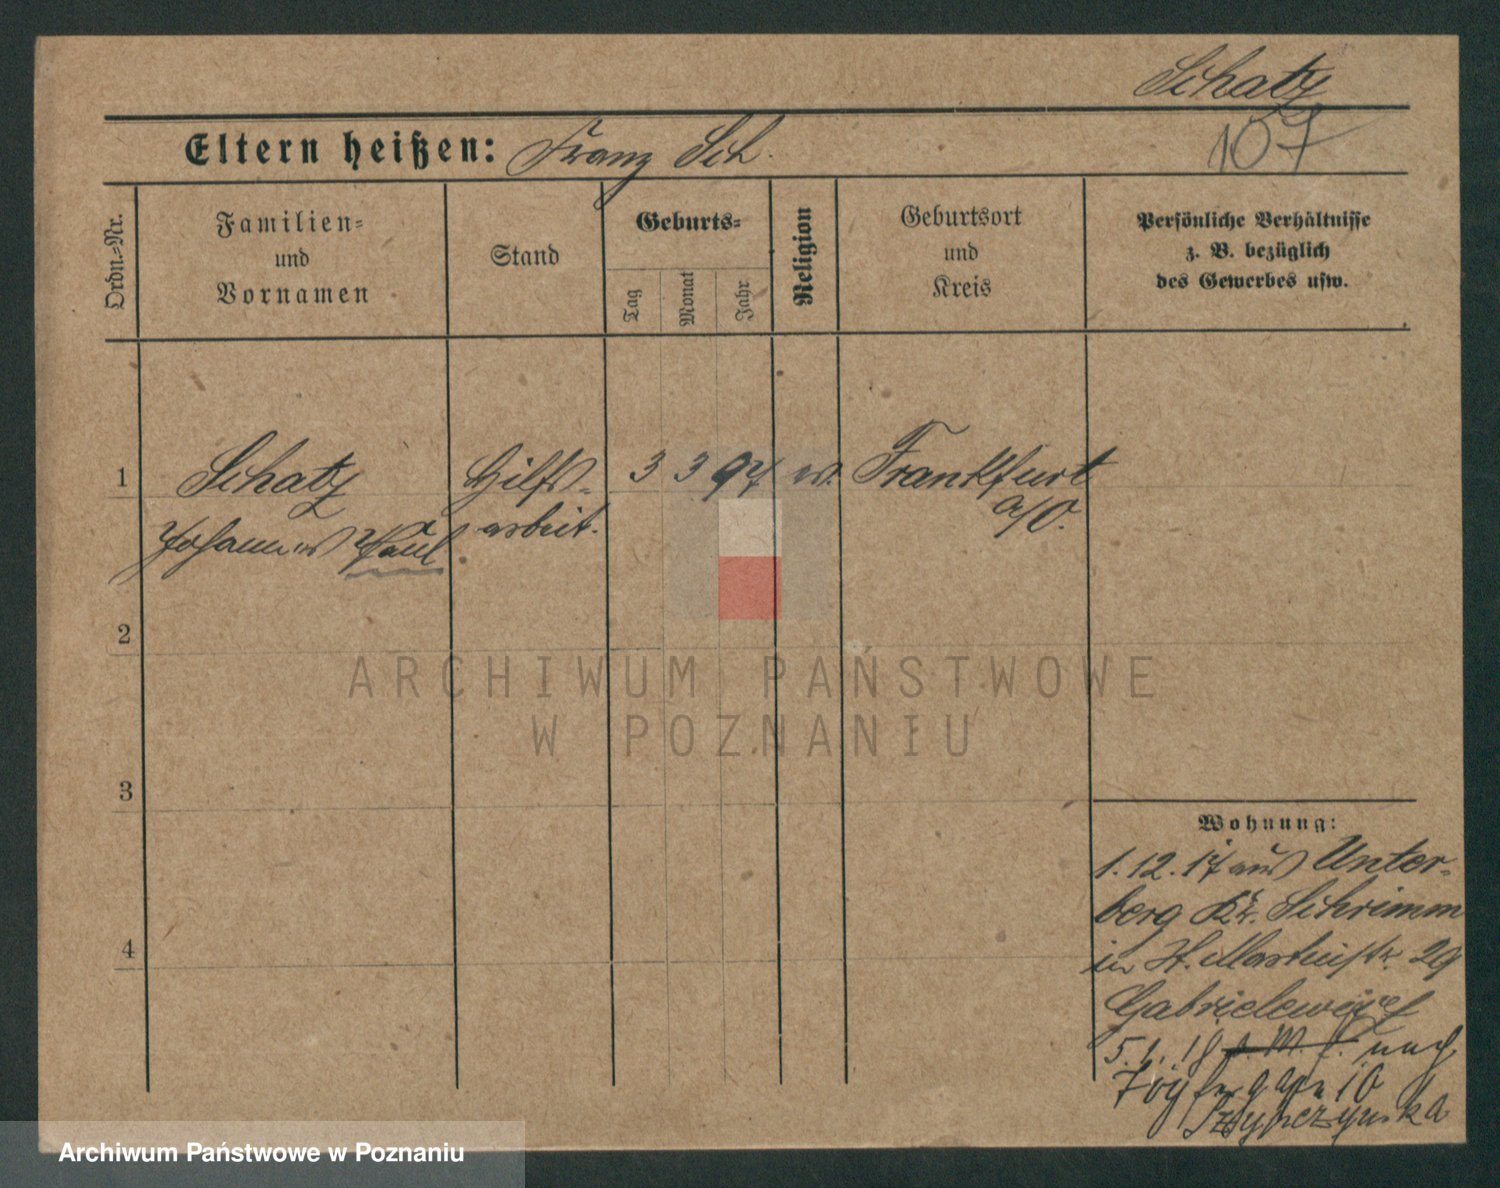 Schatz
107
Eltern heißen: Franz Sch.
Ordn.=Nr.
Familien=
und
Vornamen
Stand
Geburts=
Tag
Monat
Jahr
Religion
Geburtsort
und
Kreis
Persönliche Verhältnisse
z. B. bezüglich
des Gewerbes usw.
1
Schatz
Johannes Paul
Hilfs=
arbeit.
3 3 97
ev.
Frankfurt
a/O.
2
3
4
Wohnung:
1.12.17 aus Unter-
berg Kr. Schrimm
in St. Martinstr. 29
5.1.18 nach
10
ARCHIWUM PAŃSTWOWE
W POZNANIU
Archiwum Państwowe w Poznaniu